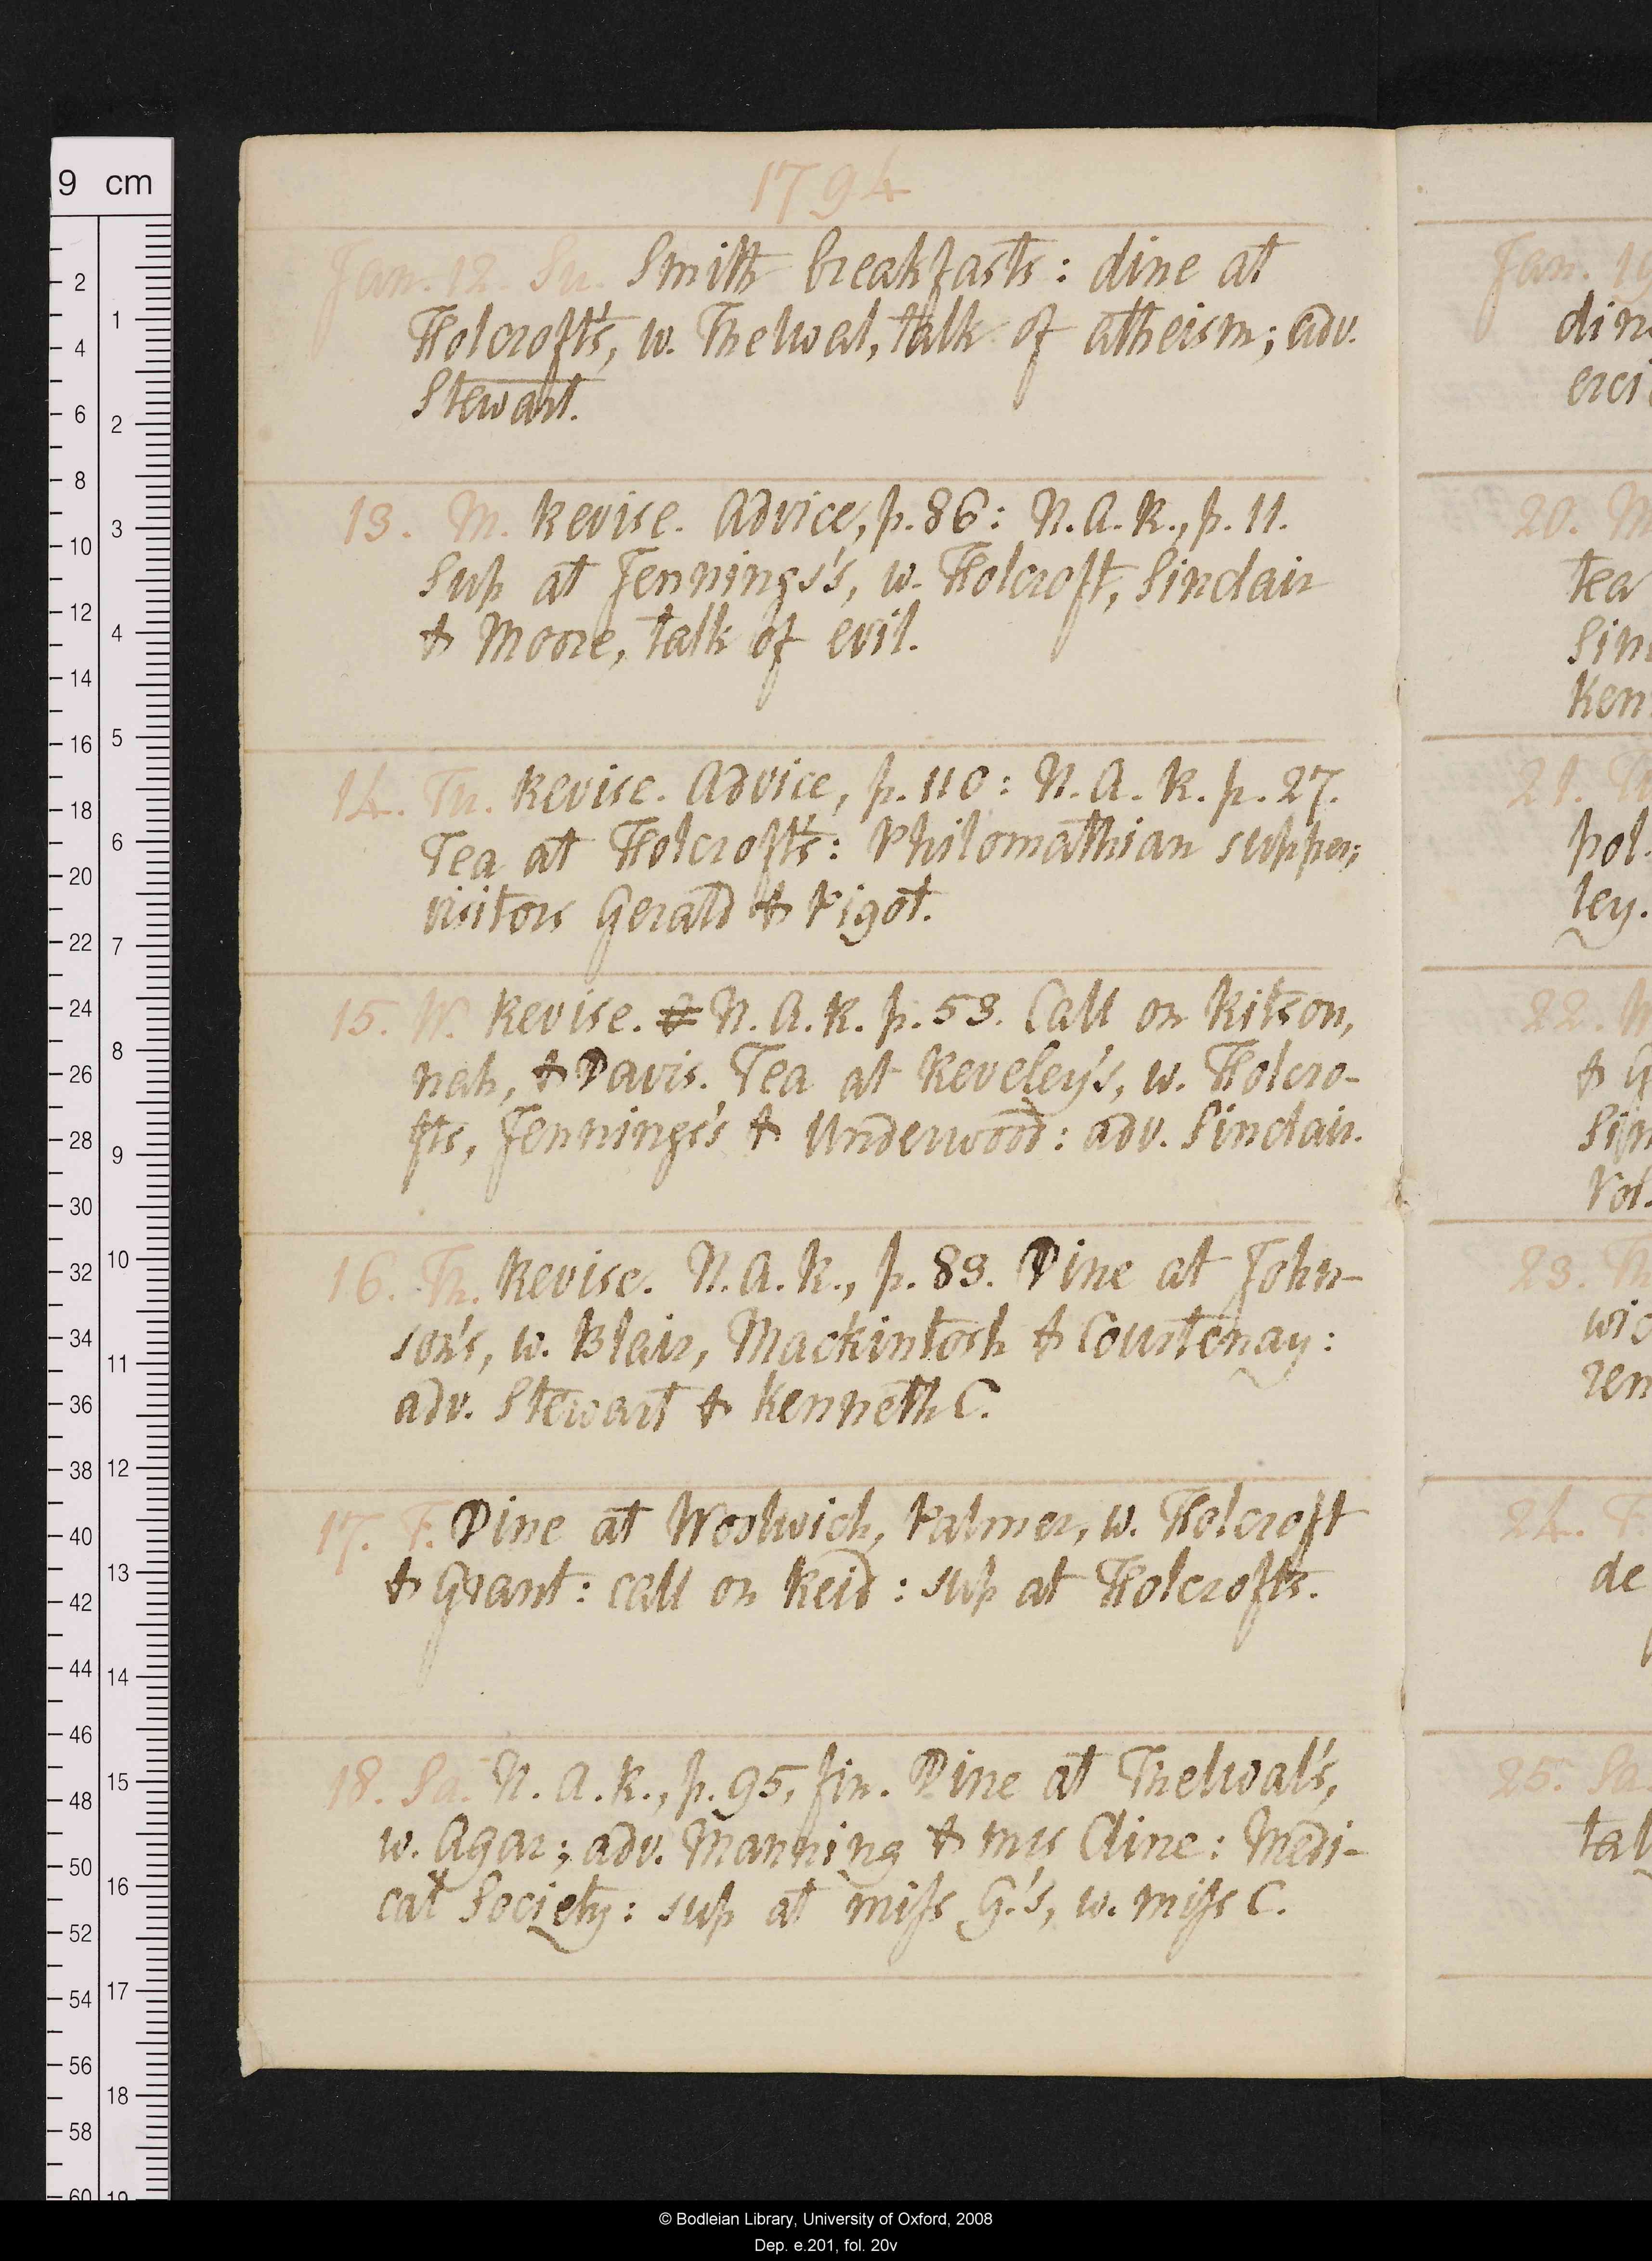 1794
Jan. 12. Su. Smith breakfasts: dine at
Holcroft's, w. Thelwal, talk of atheism; adv.
Stewart.
13. M. Revise. Advice, p. 86: N. A. R., p. 11.
Sup at Jennings's, w. Holcroft, Sinclair
& Moore, talk of evil.
14. Tu. Revise. Advice, p. 110: N. A. R. p. 27.
Tea at Holcroft's: Philomathian supper;
visitors Gerald & Pigot.
15. W. Revise. N. A. R. p. 53. Call on Ritson,
nah, & Davis. Tea at Reveley's, w. Holcro-
fts, Jennings's & Underwood: adv. Sinclair.
16. Th. Revise. N. A. R., p. 83. Dine at John-
son's, w. Blair, Mackintosh & Courtenay:
adv. Stewart & Kenneth C.
17. F. Dine at Woolwich, Palmer, w. Holcroft
& Grant: call on Reid: sup at Holcrofts.
18. Sa. N. A. R., p. 95, fin. Dine at Thelwal's,
w. Agar; adv. Manning & mrs Cline: Medi-
cal Society: sup at miss G.'s, w. miss C.
Jan. 19
erci
20. M
tea
Sin
Ken
21. Tu
pol.
ley.
22. W
& G
Sin
Vol.
23. Th
wic
ren
24. F.
de
25. Sa.
tal
9 cm
2
4
6
8
10
12
14
16
18
20
22
24
26
28
30
32
34
36
38
40
42
44
46
48
50
52
54
56
58
60
1
2
3
4
5
6
7
8
9
10
11
12
13
14
15
16
17
18
19
© Bodleian Library, University of Oxford, 2008
Dep. e.201, fol. 20v